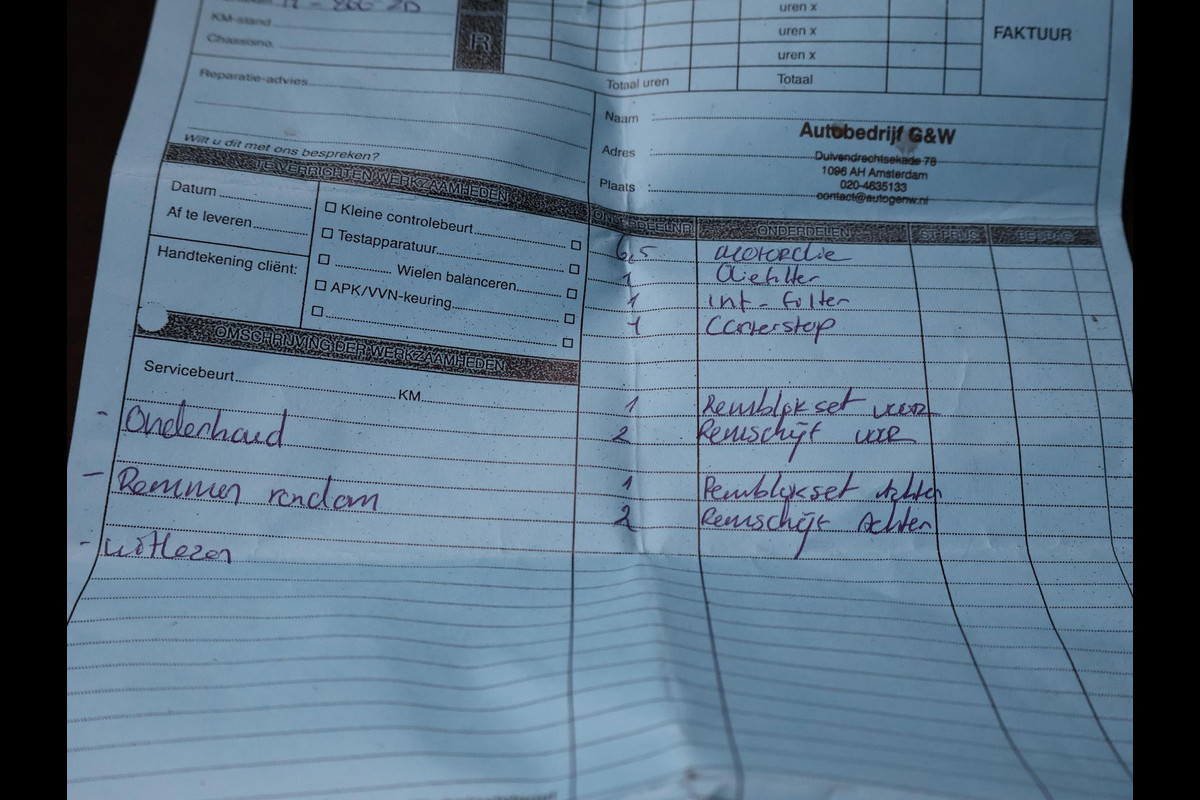 uren x
KM-stand
R
uren x
FAKTUUR
Chassisno.
uren x
Reparatie-advies
Totaal uren
Totaal
Naam :
Autobedrijf G&W
Wilt u dit met ons bespreken?
Adres :
Duivendrechtsekade 78
1096 AH Amsterdam
Plaats :
020-4635133
contact@autogenw.nl
TE VERRICHTEN WERKZAAMHEDEN
Datum
Af te leveren
Handtekening cliënt:
Kleine controlebeurt
Testapparatuur
Wielen balanceren
APK/VVN-keuring
ONDERDEELNR. ONDERDELEN ST. PRIJS BEDRAG
6,5 Motorolie
1 Oliefilter
1 int-filter
1 Carterstop
1 Remblokset voor
2 Remschijf voor
1 Remblokset Achter
2 Remschijf Achter
OMSCHRIJVING DER WERKZAAMHEDEN
Servicebeurt KM
- Onderhoud
- Remmen rondom
- uitlezen